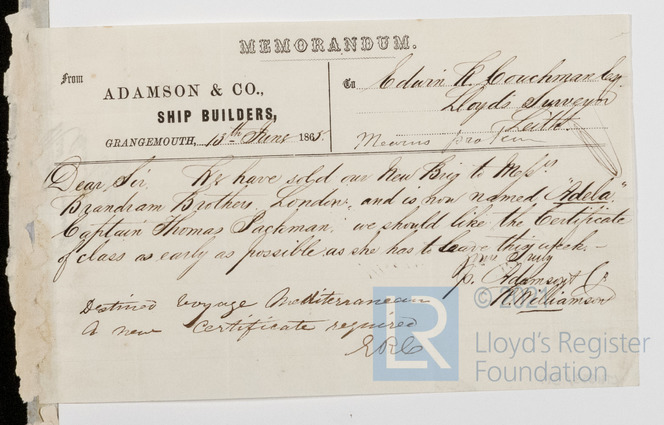 MEMORANDUM.
From
ADAMSON & CO.,
SHIP BUILDERS,
GRANGEMOUTH, 13th June 1865.
To Edwin K. Couchman Esq.
Lloyds Surveyor
Leith.
Mearns pro tem
Dear Sir. We have sold our New Brig to Messrs
Brandram Brothers, London, and is now named, "Adela",
Captain Thomas Packman. we should like the Certificate
of class as early as possible as she has to leave this week. –
Yours Truly
p. Adamson & Co
Williamson
Destined Voyage Mediterranean
A new Certificate required
LR
Lloyd's Register
Foundation